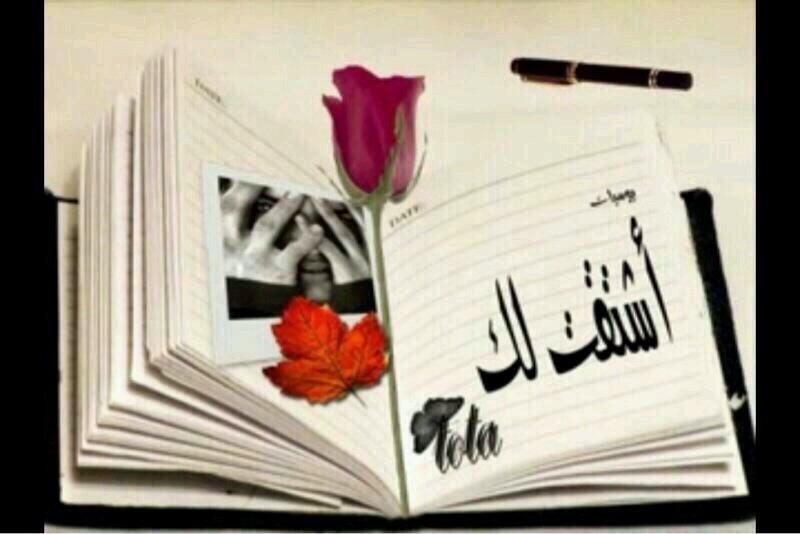 DATE
DATE
يوميات
أشتقت لك
tota